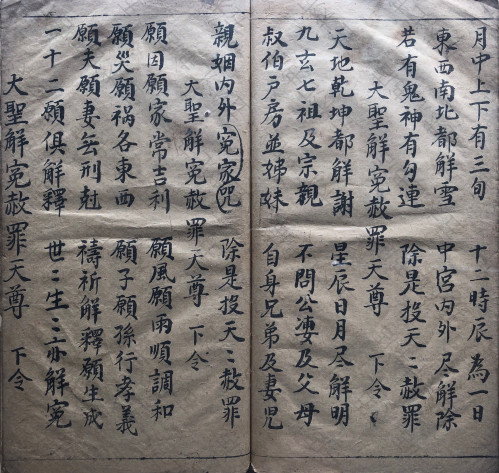 月中上下有三旬 十二時辰為一日
東西南北都解雪 中宮内外尽解除
若有鬼神有勾連 除是投天〻赦罪
大聖解冤赦罪天尊 下令
天地乾坤都解謝 星辰日月尽解明
九玄七祖及宗親 不問公婆及父母
叔伯户房並姊妹 自身兄弟及妻児
親姻内外冤家咒 除是投天〻赦罪
大聖解冤赦罪天尊 下令
願因願家常吉利 願風願雨順調和
願災願禍各東西 願子願孫行孝義
願夫願妻無刑尅 禱祈解釋願生成
一十二願俱解釋 世〻生〻亦解冤
大聖解冤赦罪天尊 下令